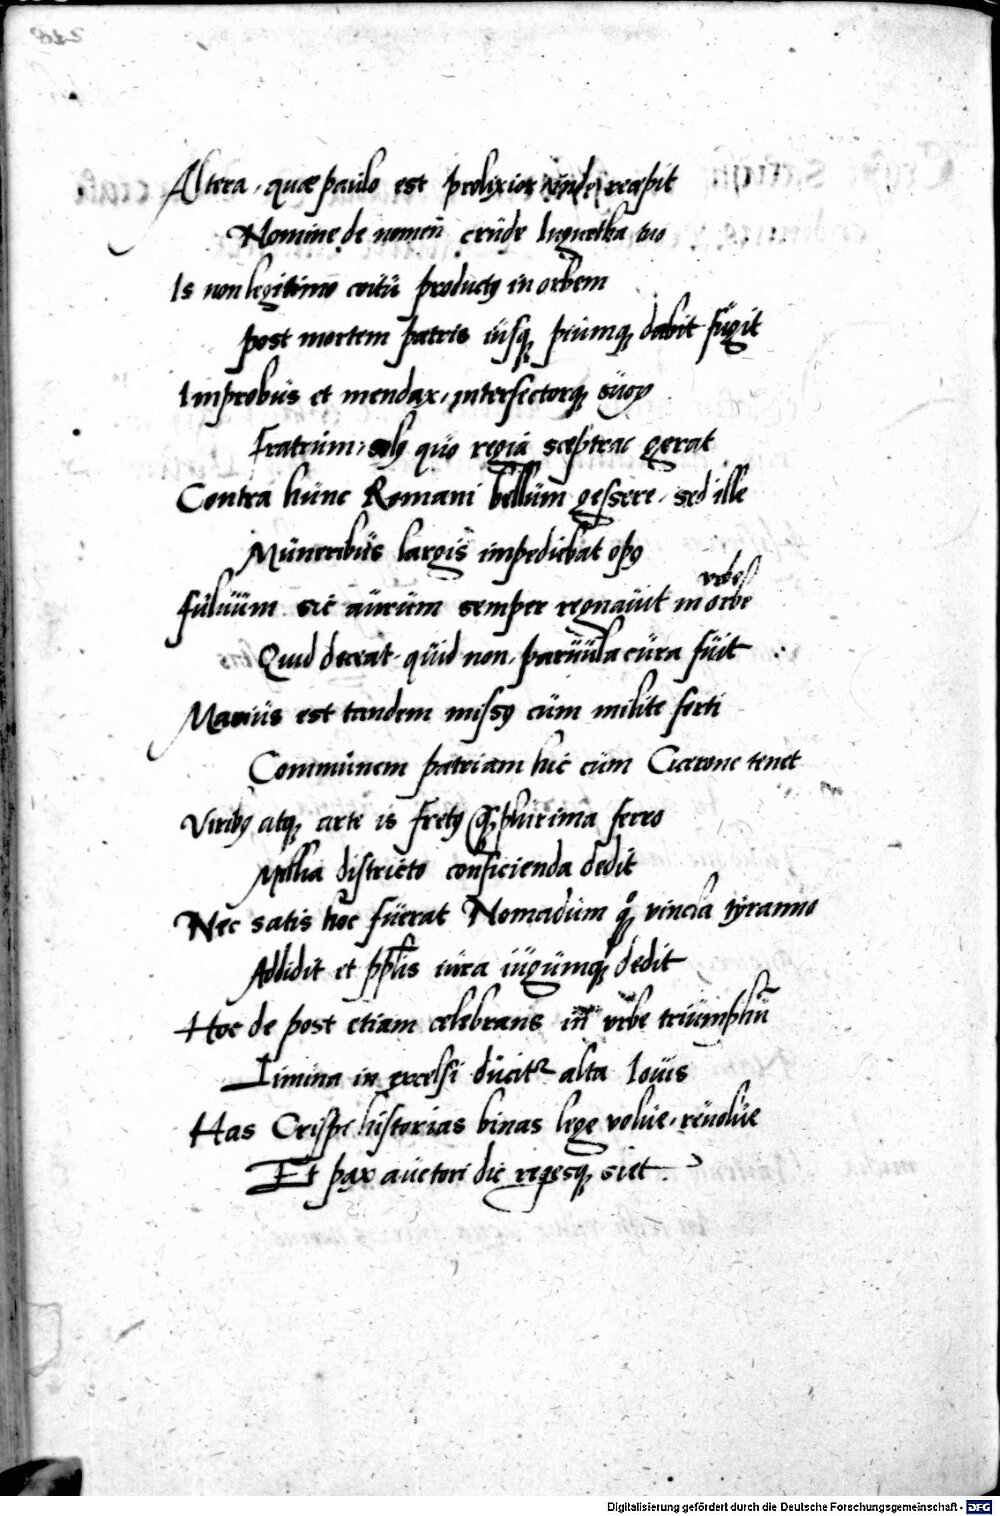 Altera, quæ paulo est prolixior inde recepit
Nomine de nomen crude Iugurtha tuo
Is non legitimo coitu productꝰ in orbem
post mortem patris iusqꝫ piumqꝫ dabit fugit
Improbus et mendax, intersectorqꝫ suoꝝ
Fratrum, solꝰ quo regia sceptra gerat
Contra hunc Romani bellum gessere, sed ille
Muneribus largis impediebat opꝰ
urbe
Fuluum sic aurum semper regnauit in orbe
Quid deceat, quid non, paruula cura fuit
Marius est tandem missꝰ cum milite forti
Communem patriam hic cum Cicerone tenet
Viribꝰ atqꝫ arte is fretꝰ qꝫ plurima ferro
Millia districto conficienda dedit
Nec satis hoc fuerat Nomadum qꝫ vincla tyranno
Addidit et pplis iura iugumqꝫ dedit
Hoc de post etiam celebrans in urbe triumphū
Limina in excelsi ducitꝛ alta Iouis
Has Crispe historias binas lege volue, reuolue
Et pax auctori dic regesqꝫ siet.
Digitalisierung gefördert durch die Deutsche Forschungsgemeinschaft - DFG